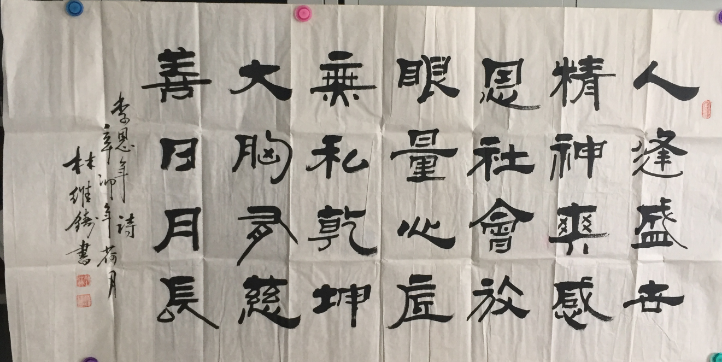 人逢盛世
精神爽感
恩社會放
眼量心虛
無私乾坤
大胸多慈
善日月長
李恩年詩
辛卯年荷月
林維書